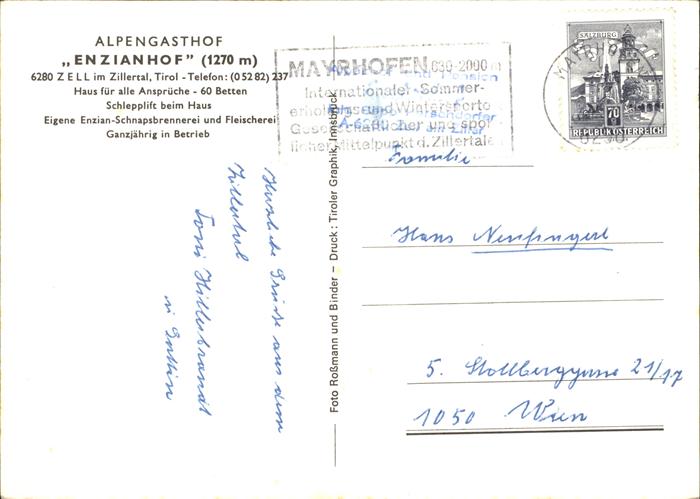 ALPENGASTHOF
„ENZIANHOF” (1270 m)
6280 ZELL im Zillertal, Tirol - Telefon: (05282) 237
Haus für alle Ansprüche - 60 Betten
Schlepplift beim Haus
Eigene Enzian-Schnapsbrennerei und Fleischerei
Ganzjährig in Betrieb
MAYRHOFEN 630-2000 m
Internationaler Sommer-
erholungs- und Wintersportort
Gesellschaftlicher und sport-
licher Mittelpunkt d. Zillertales
Pension
A-6280 Zell am Ziller
SALZBURG
70
REPUBLIK ÖSTERREICH
MAYRHOFEN
Foto Roßmann und Binder – Druck: Tiroler Graphik, Innsbruck
Herzliche Grüße aus dem
Zillertal
Toni Hillebrandt
u Gattin
Familie
Hans Neufingerl
5. Stollberggasse 21/17
1050 Wien